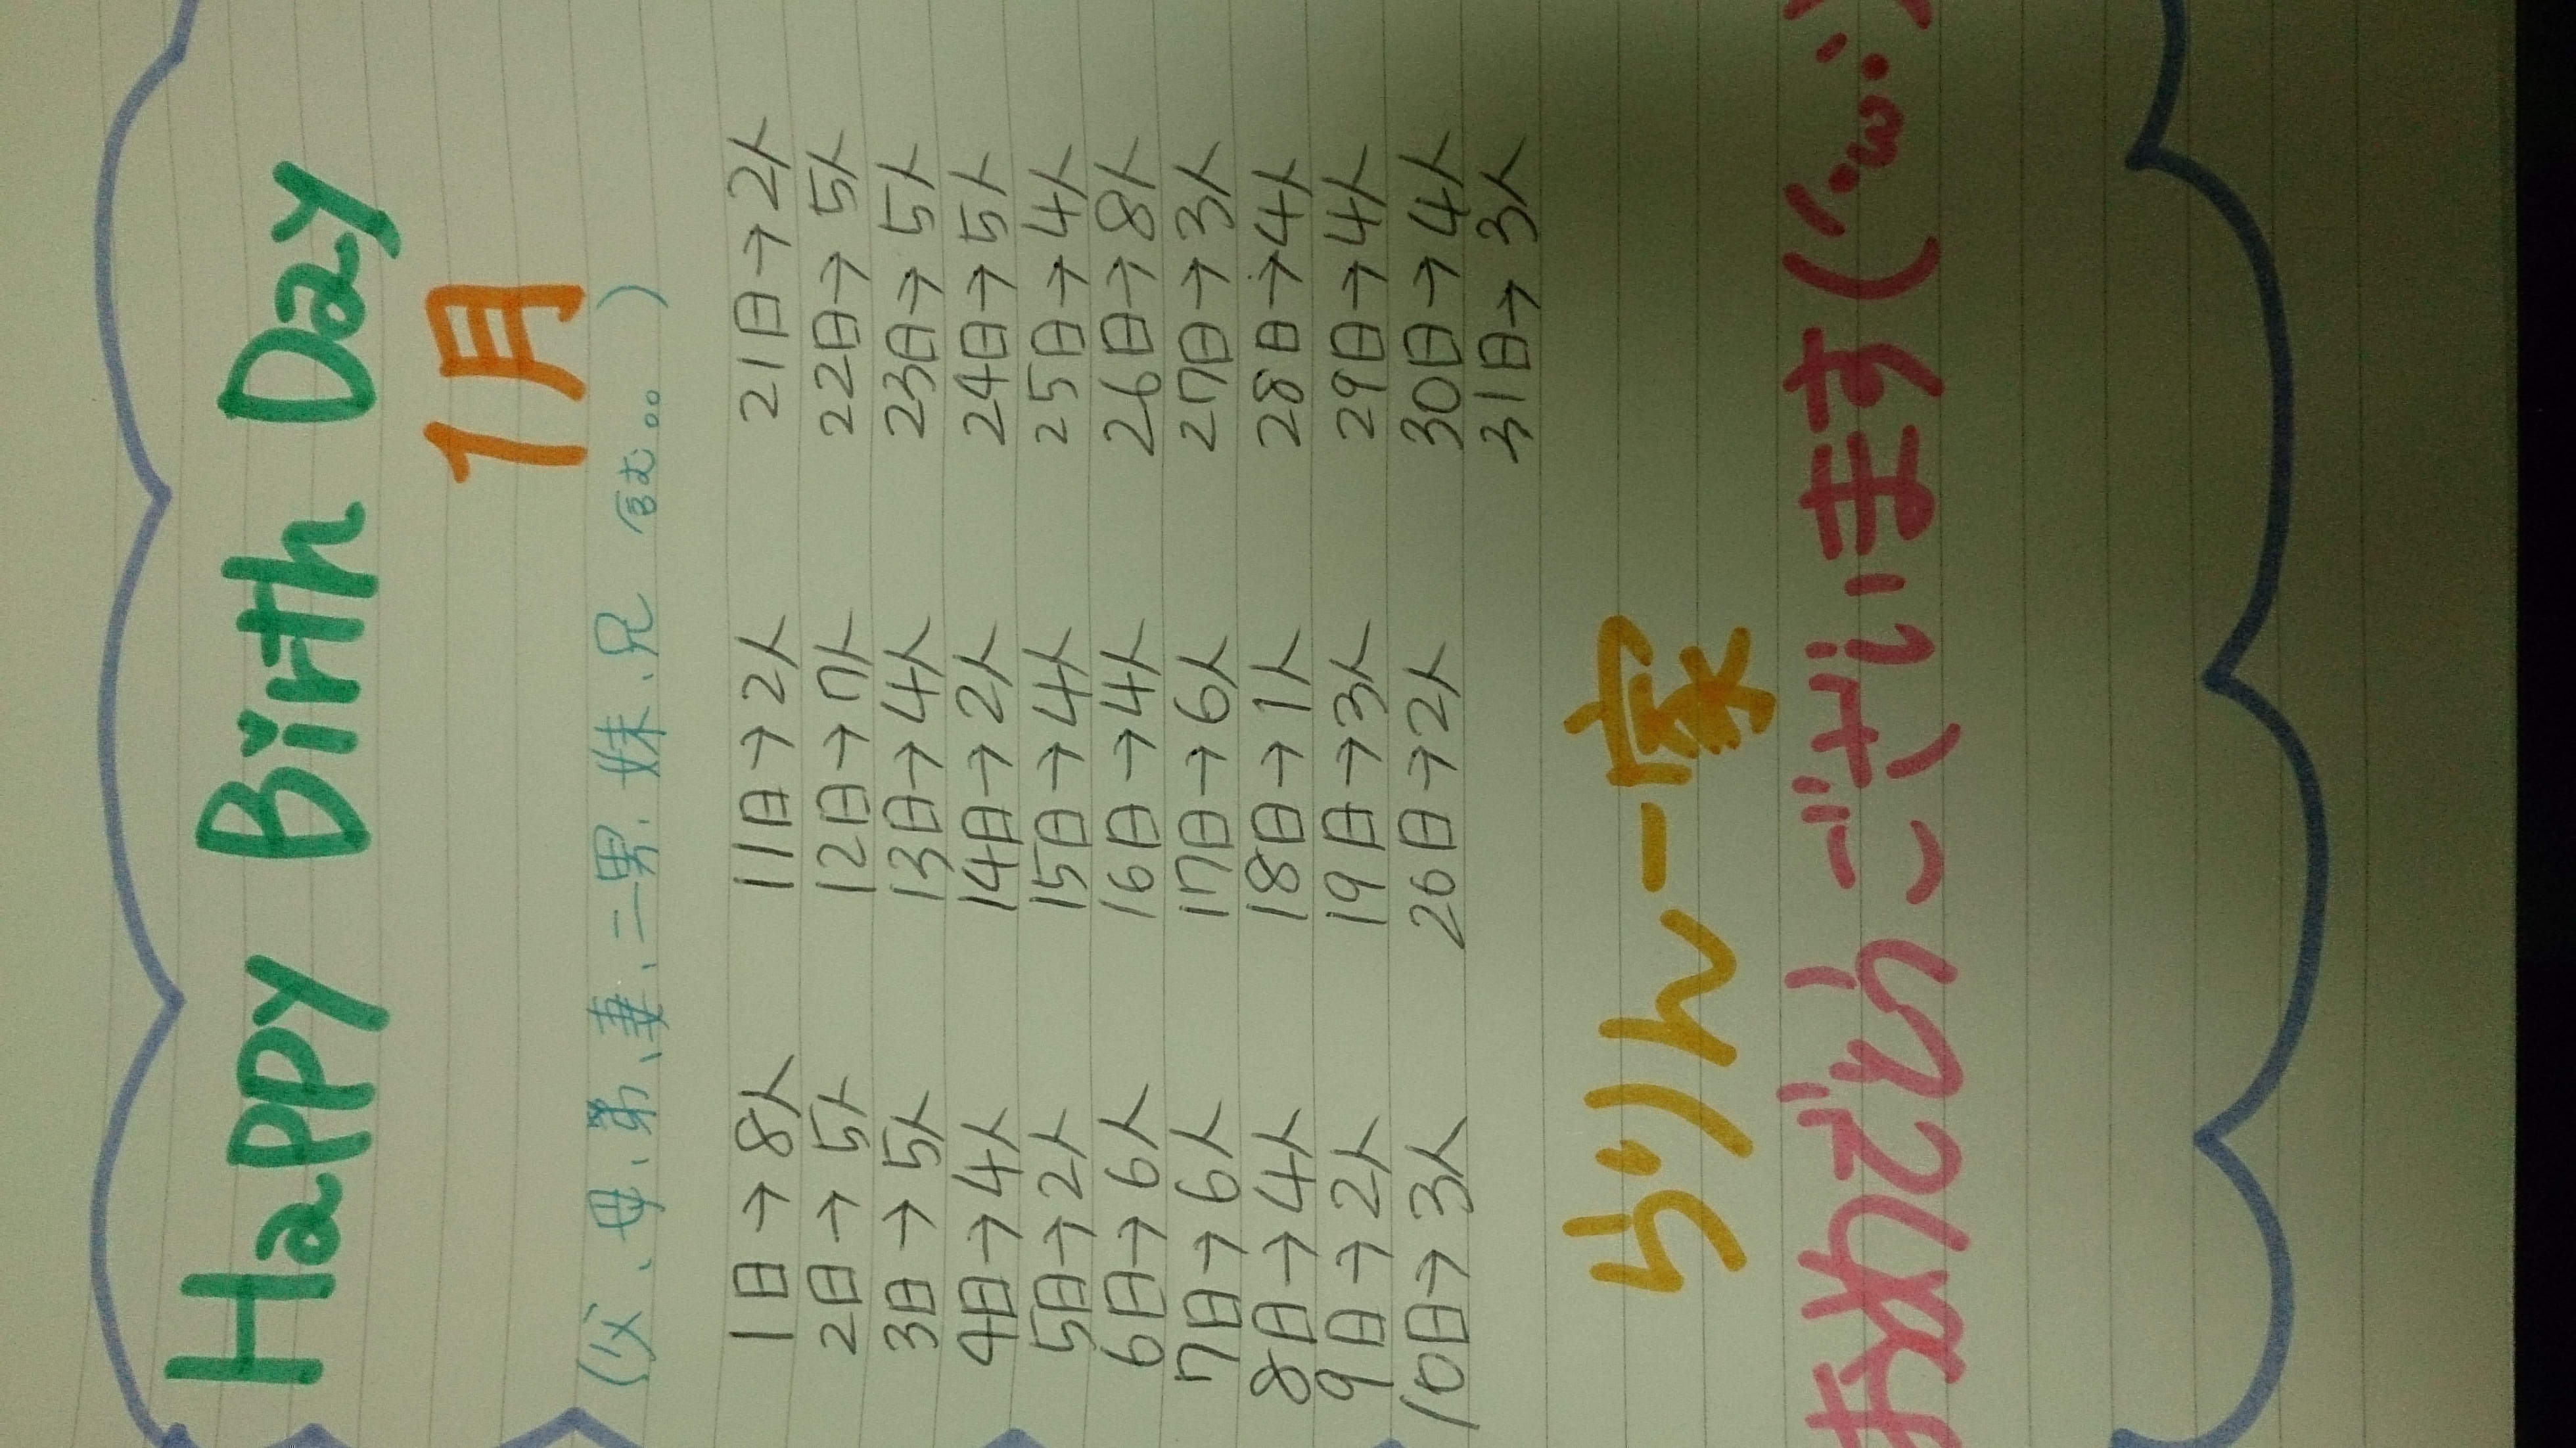 Happy Birth Day
1月
(父、母、弟、妻、二男、妹、兄 含む。。)
1日→8人
2日→5人
3日→5人
4日→4人
5日→2人
6日→6人
7日→6人
8日→4人
9日→2人
10日→3人
11日→2人
12日→7人
13日→4人
14日→2人
15日→4人
16日→4人
17日→6人
18日→1人
19日→3人
20日→2人
21日→2人
22日→5人
23日→5人
24日→5人
25日→4人
26日→8人
27日→3人
28日→4人
29日→4人
30日→4人
31日→3人
らりん一家
おめでとうございます(´・ω・`)